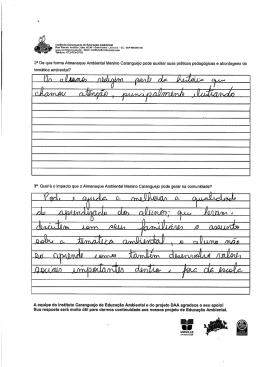 Instituto Caranguejo de Educação Ambiental
2ª De que forma Almanaque Ambiental Menino Caranguejo pode auxiliar suas práticas pedagógicas e abordagens da
temática ambiental?
Os alunos redigem parte da história que
chamou atenção, principalmente, ilustrando
3ª Qual é o impacto que o Almanaque Ambiental Menino Caranguejo pode gerar na comunidade?
Pode e ajuda a melhorar a qualidade
do aprendizado dos alunos; que levam,
discutem com seus familiares o assunto
sobre a temática ambiental, o aluno não
só aprende como também desenvolve valores
sociais importantes dentro, fora da escola
A equipe do Instituto Caranguejo de Educação Ambiental e do projeto DAA agradece o seu apoio!
Sua resposta será muito útil para darmos continuidade aos nossos projeto de Educação Ambiental.